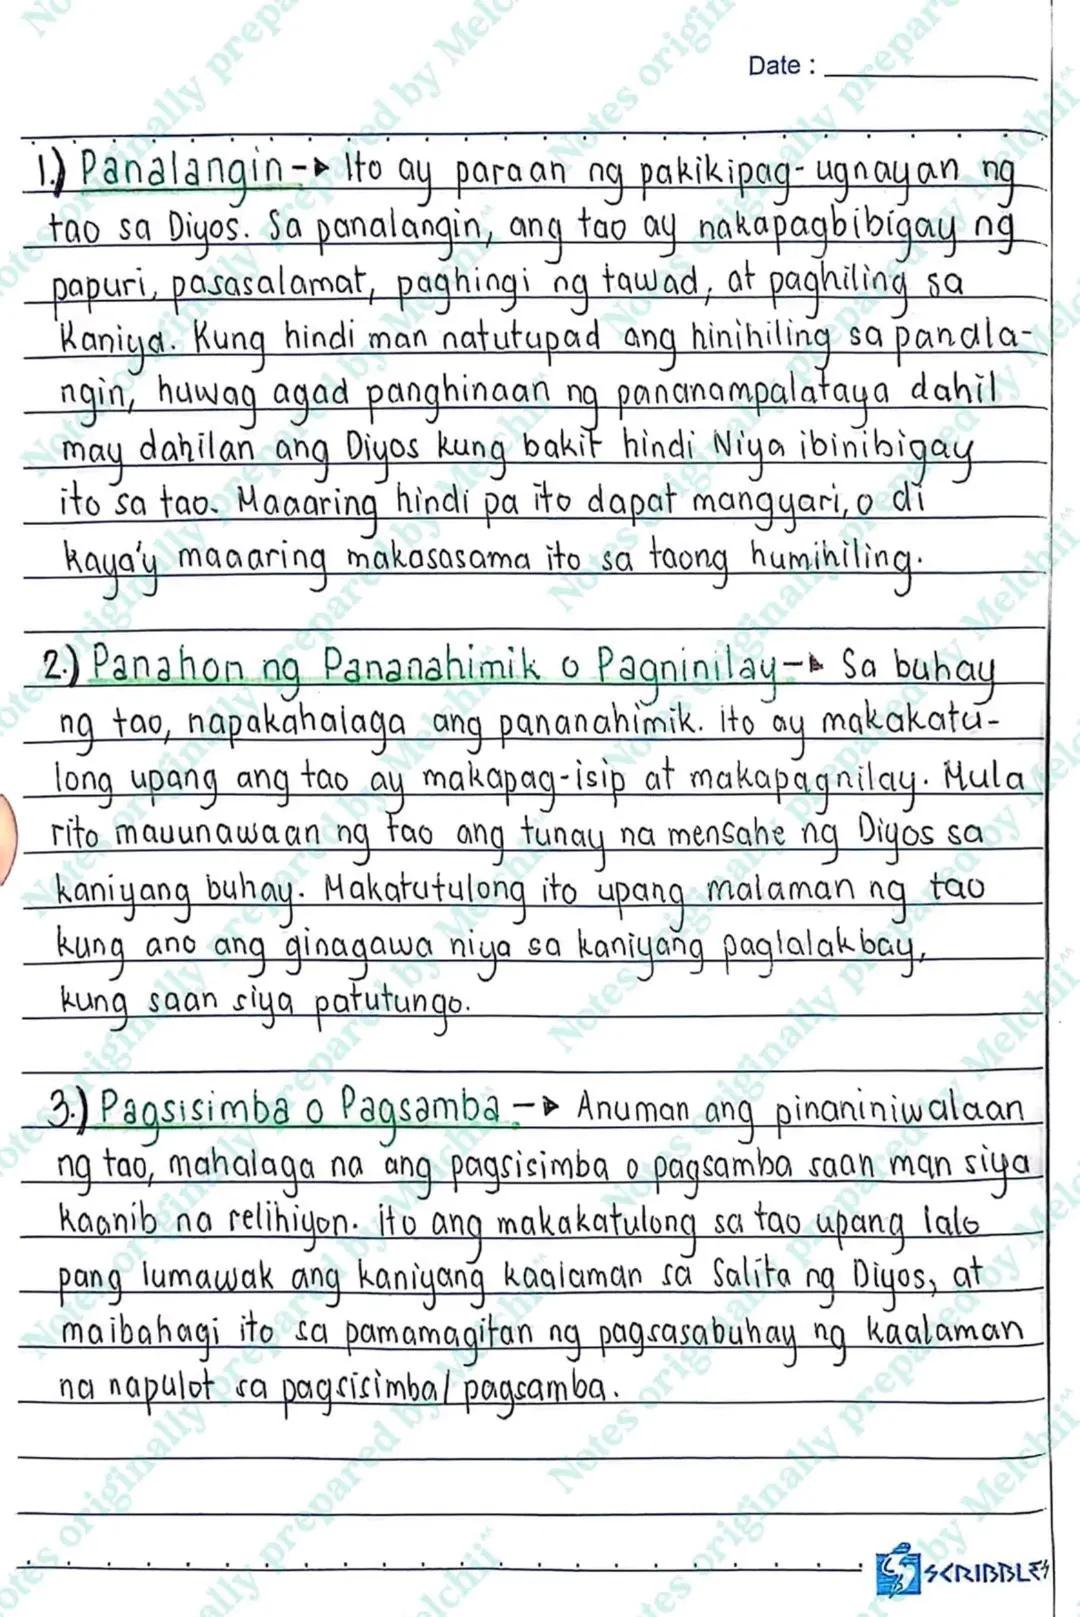 Date :
1.) Panalangin -> Ito ay paraan ng pakikipag-ugnayan ng
tao sa Diyos. Sa panalangin, ang tao ay nakapagbibigay ng
papuri, pasasalamat, paghingi ng tawad, at paghiling sa
Kaniya. Kung hindi man natutupad ang hinihiling sa panala-
ngin, huwag agad panghinaan ng pananampalataya dahil
may dahilan ang Diyos kung bakit hindi Niya ibinibigay
ito sa tao. Maaaring hindi pa ito dapat mangyari, o di
kaya'y maaaring makasasama ito sa taong humihiling.
2.) Panahon ng Pananahimik o Pagninilay -> Sa buhay
ng tao, napakahalaga ang pananahimik. ito ay makakatu-
long upang ang tao ay makapag-isip at makapagnilay. Mula
rito mauunawaan ng tao ang tunay na mensahe ng Diyos sa
kaniyang buhay. Makatutulong ito upang malaman ng tao
kung ano ang ginagawa niya sa kaniyang paglalakbay,
kung saan siya patutungo.
3.) Pagsisimba o Pagsamba -> Anuman ang pinaniniwalaan
ng tao, mahalaga na ang pagsisimba o pagsamba saan man siya
kaanib na relihiyon. ito ang makakatulong sa tao upang lalo
pang lumawak ang kaniyang kaalaman sa Salita ng Diyos, at
maibahagi ito sa pamamagitan ng pagsasabuhay ng kaalaman
na napulot sa pagsisimba/ pagsamba.
SCRIBBLES
Notes originally prepared by Melchii™